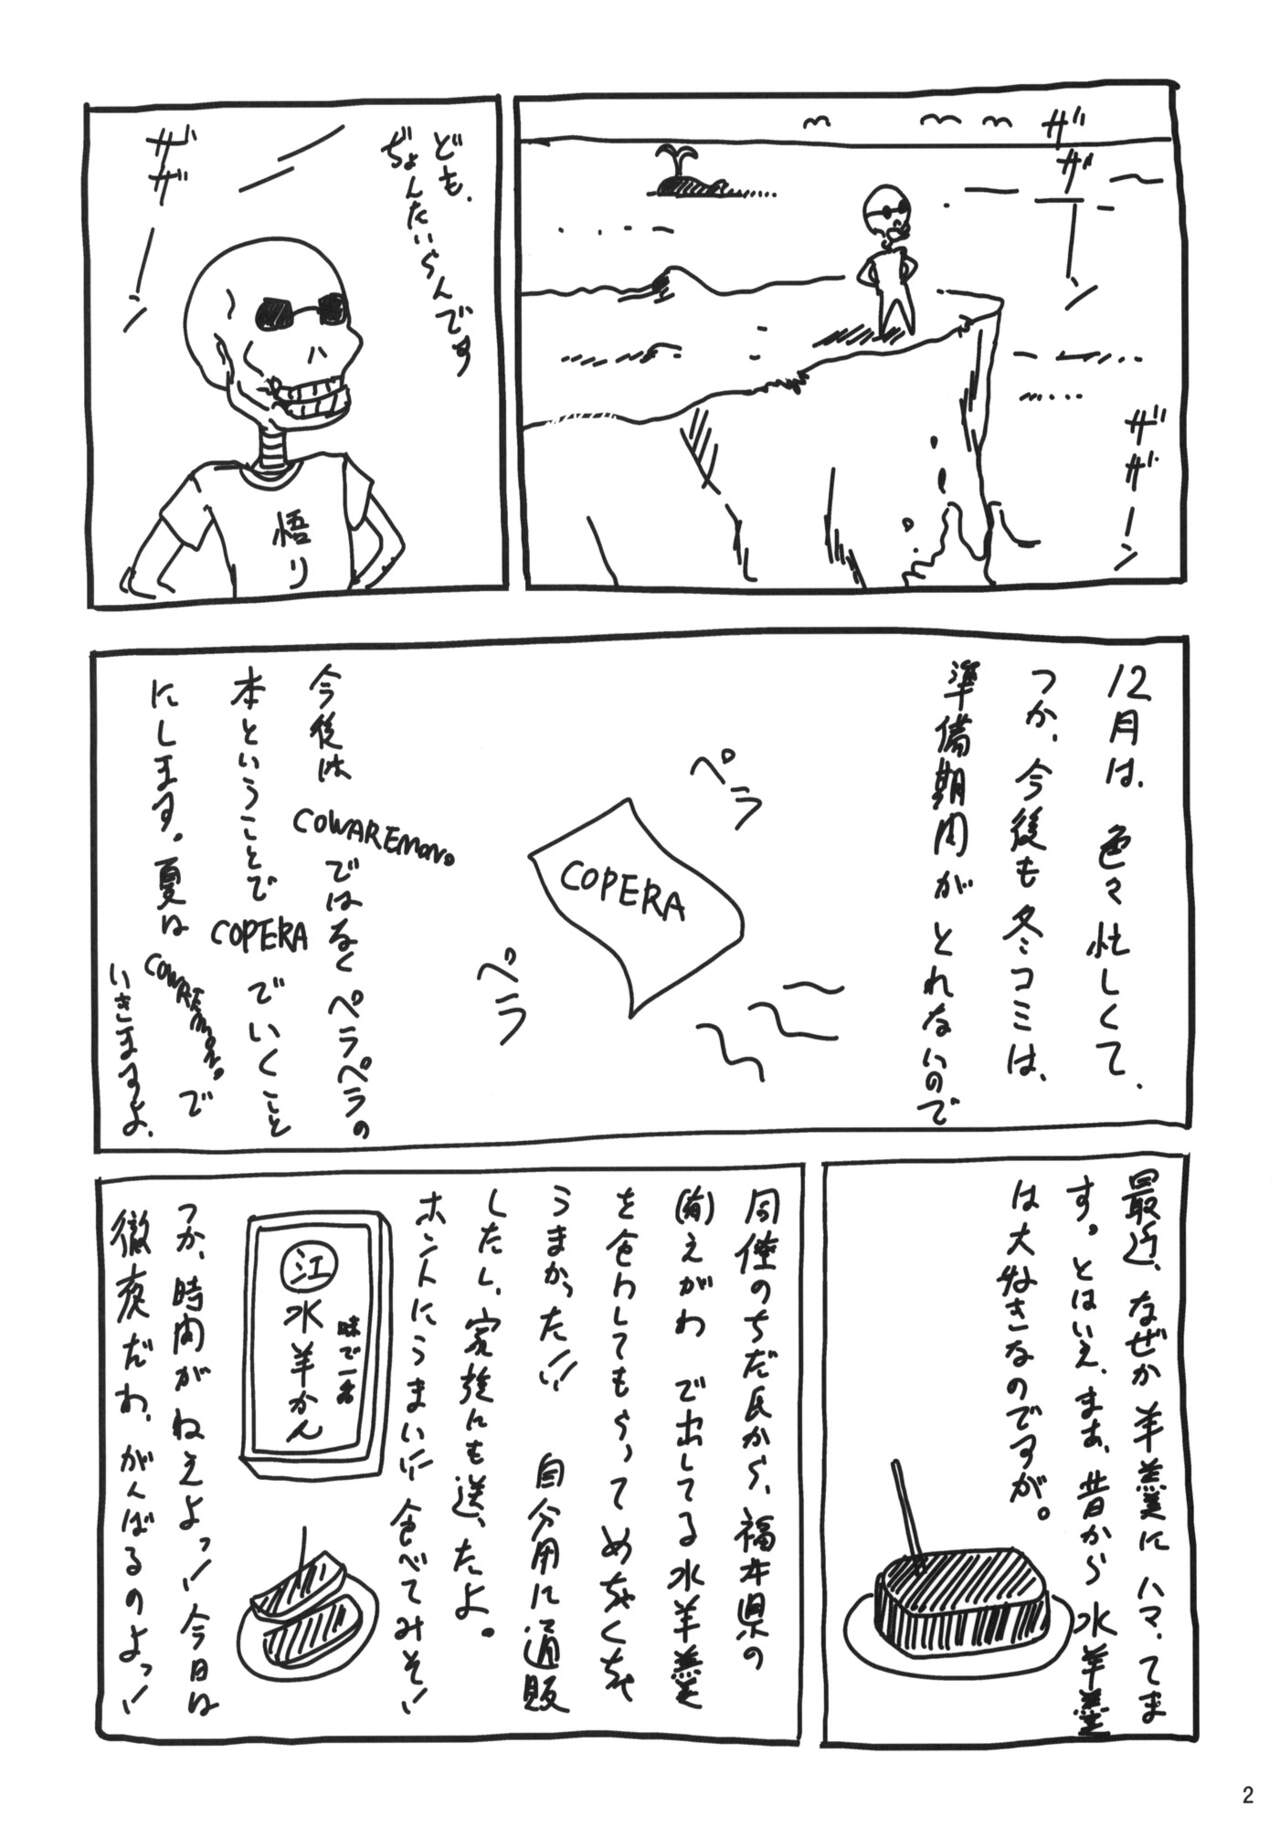 ザザーン
ザザーン
ども、
ぢょんたいらんです
ザザーン
悟り
12月は、色々忙しくて、
つか、今後も冬コミは、
準備期間がとれないので
ペラ
COPERA
ペラ
今後は COWAREMONO。ではなくペラペラの
本ということで COPERA でいくこと
にします。夏は COWAREMONO。で
いきますよ、
最近、なぜか羊羹にハマってま
す。とはいえ、まぁ、昔から水羊羹
は大好きなのですが。
同僚のちだ氏から、福井県の
(有)えがわで出してる水羊羹
を食わしてもらってめちゃくちゃ
うまかった!!! 自分用に通販
したし、家族にも送ったよ。
ホントにうまい!!! 食べてみそ!
江
水羊かん
味で一番
つか、時間がねえよっ!! 今日は
徹夜だわ、がんばるのよっ!
2